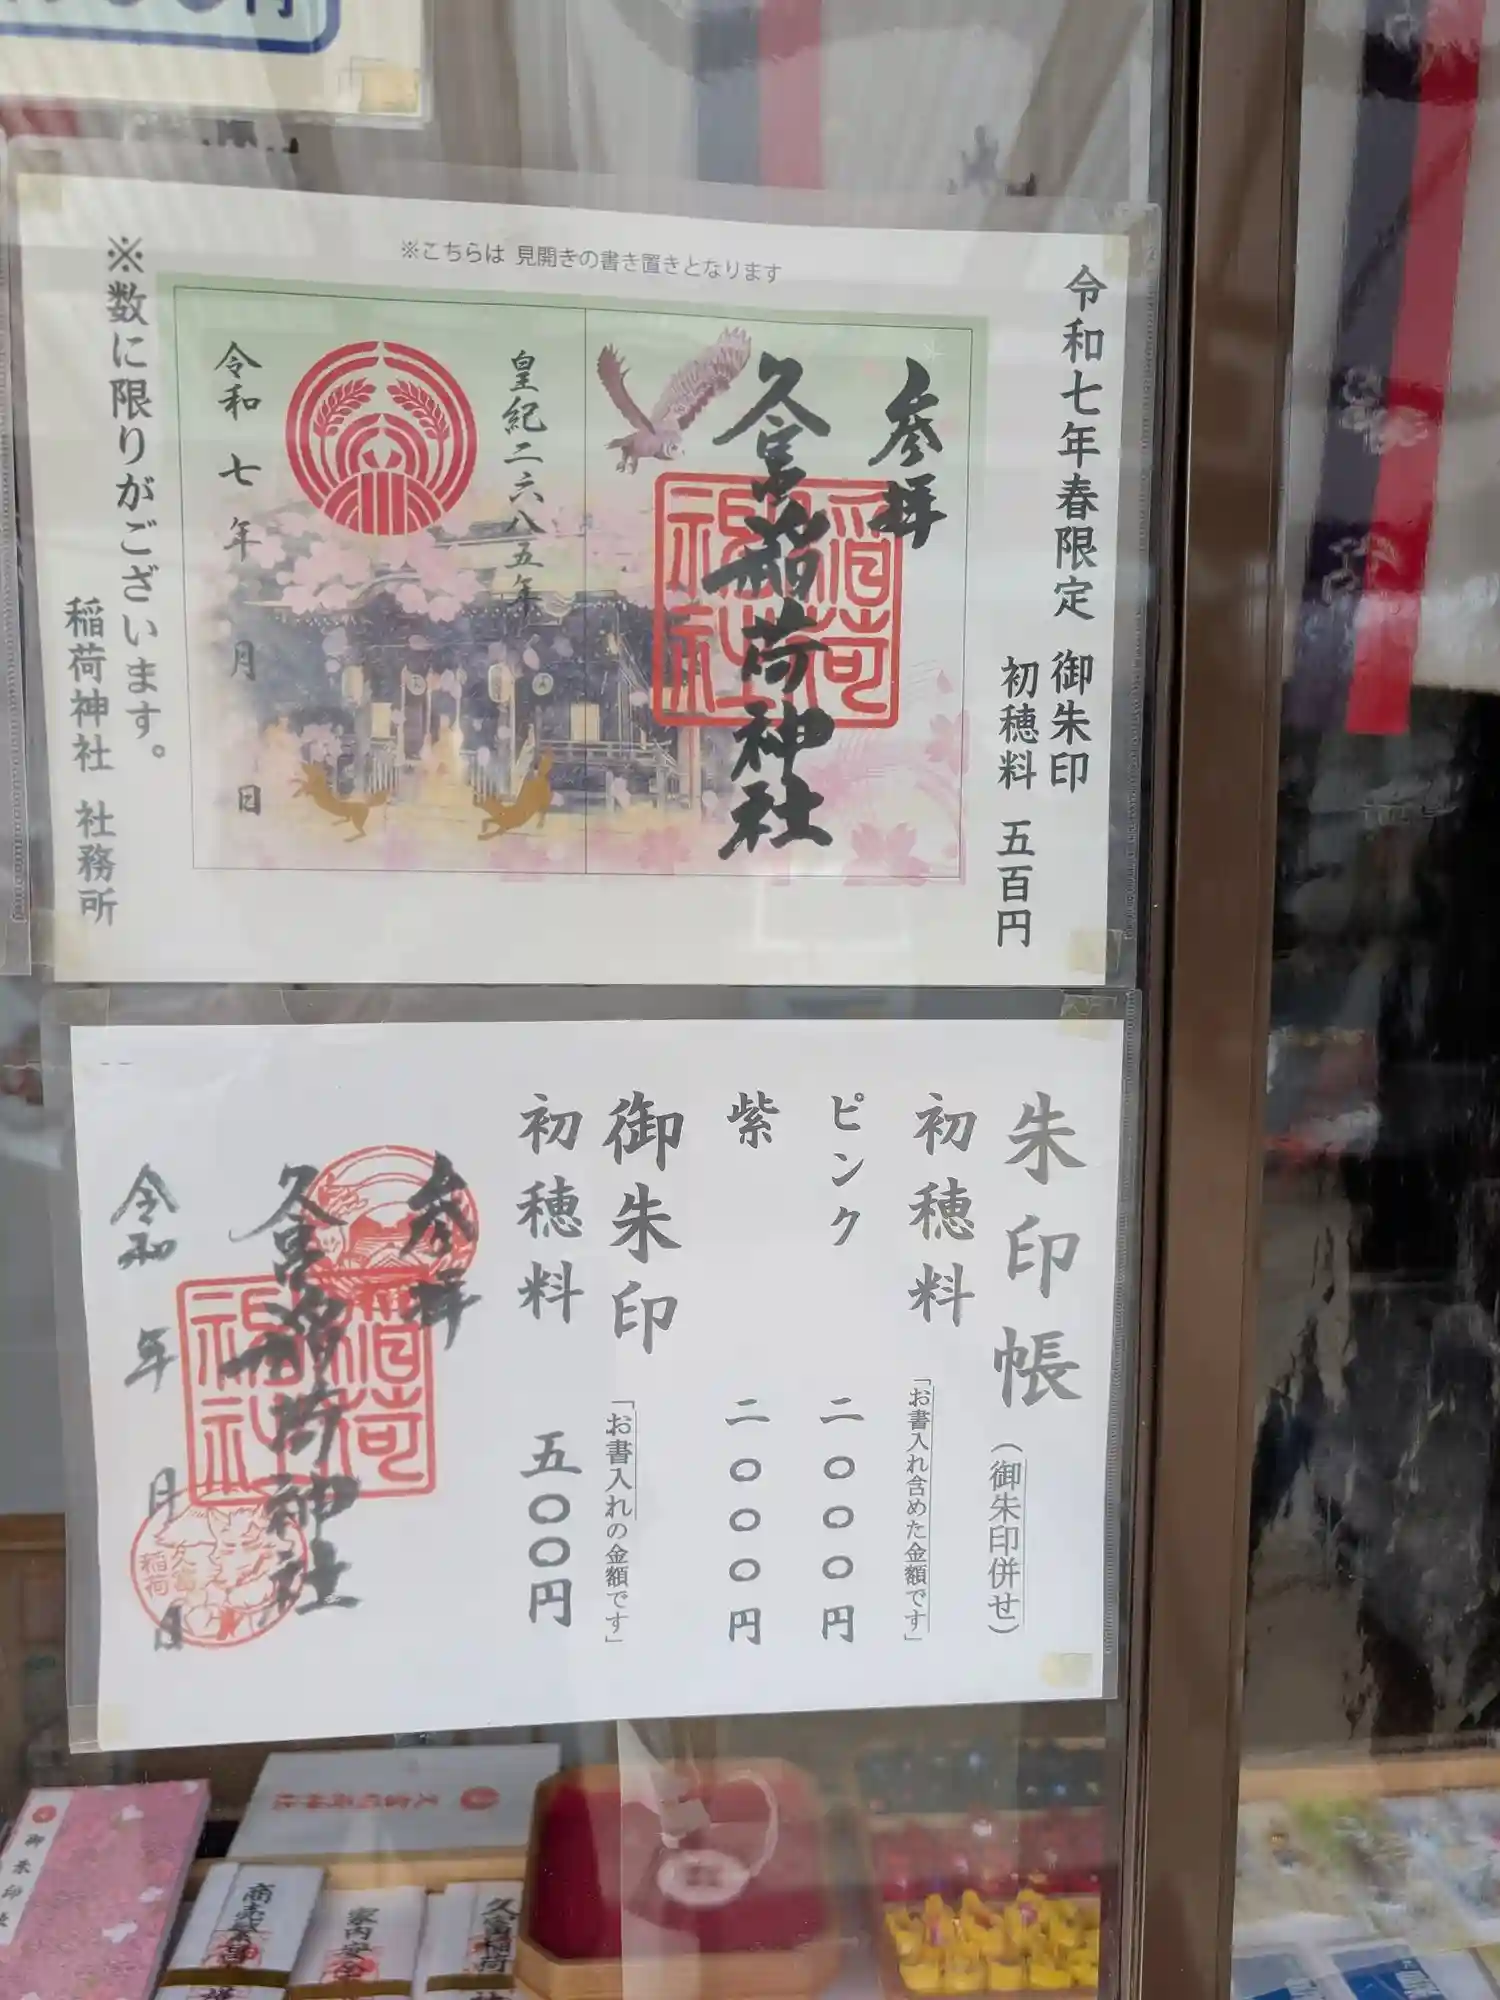 ※こちらは 見開きの書き置きとなります
令和七年春限定 御朱印
初穂料 五百円
参拝
久富稲荷神社
稲荷
神社
皇紀二六八五年
令和七年 月 日
※数に限りがございます。
稲荷神社 社務所
朱印帳(御朱印併せ)
初穂料「お書入れ含めた金額です」
ピンク 二〇〇〇円
紫 二〇〇〇円
御朱印「お書入れの金額です」
初穂料 五〇〇円
参拝
久富稲荷神社
稲荷
神社
令和 年 月 日
久富
稲荷
久富稲荷神社
御朱印帳
商売繁昌
家内安全
久富稲荷